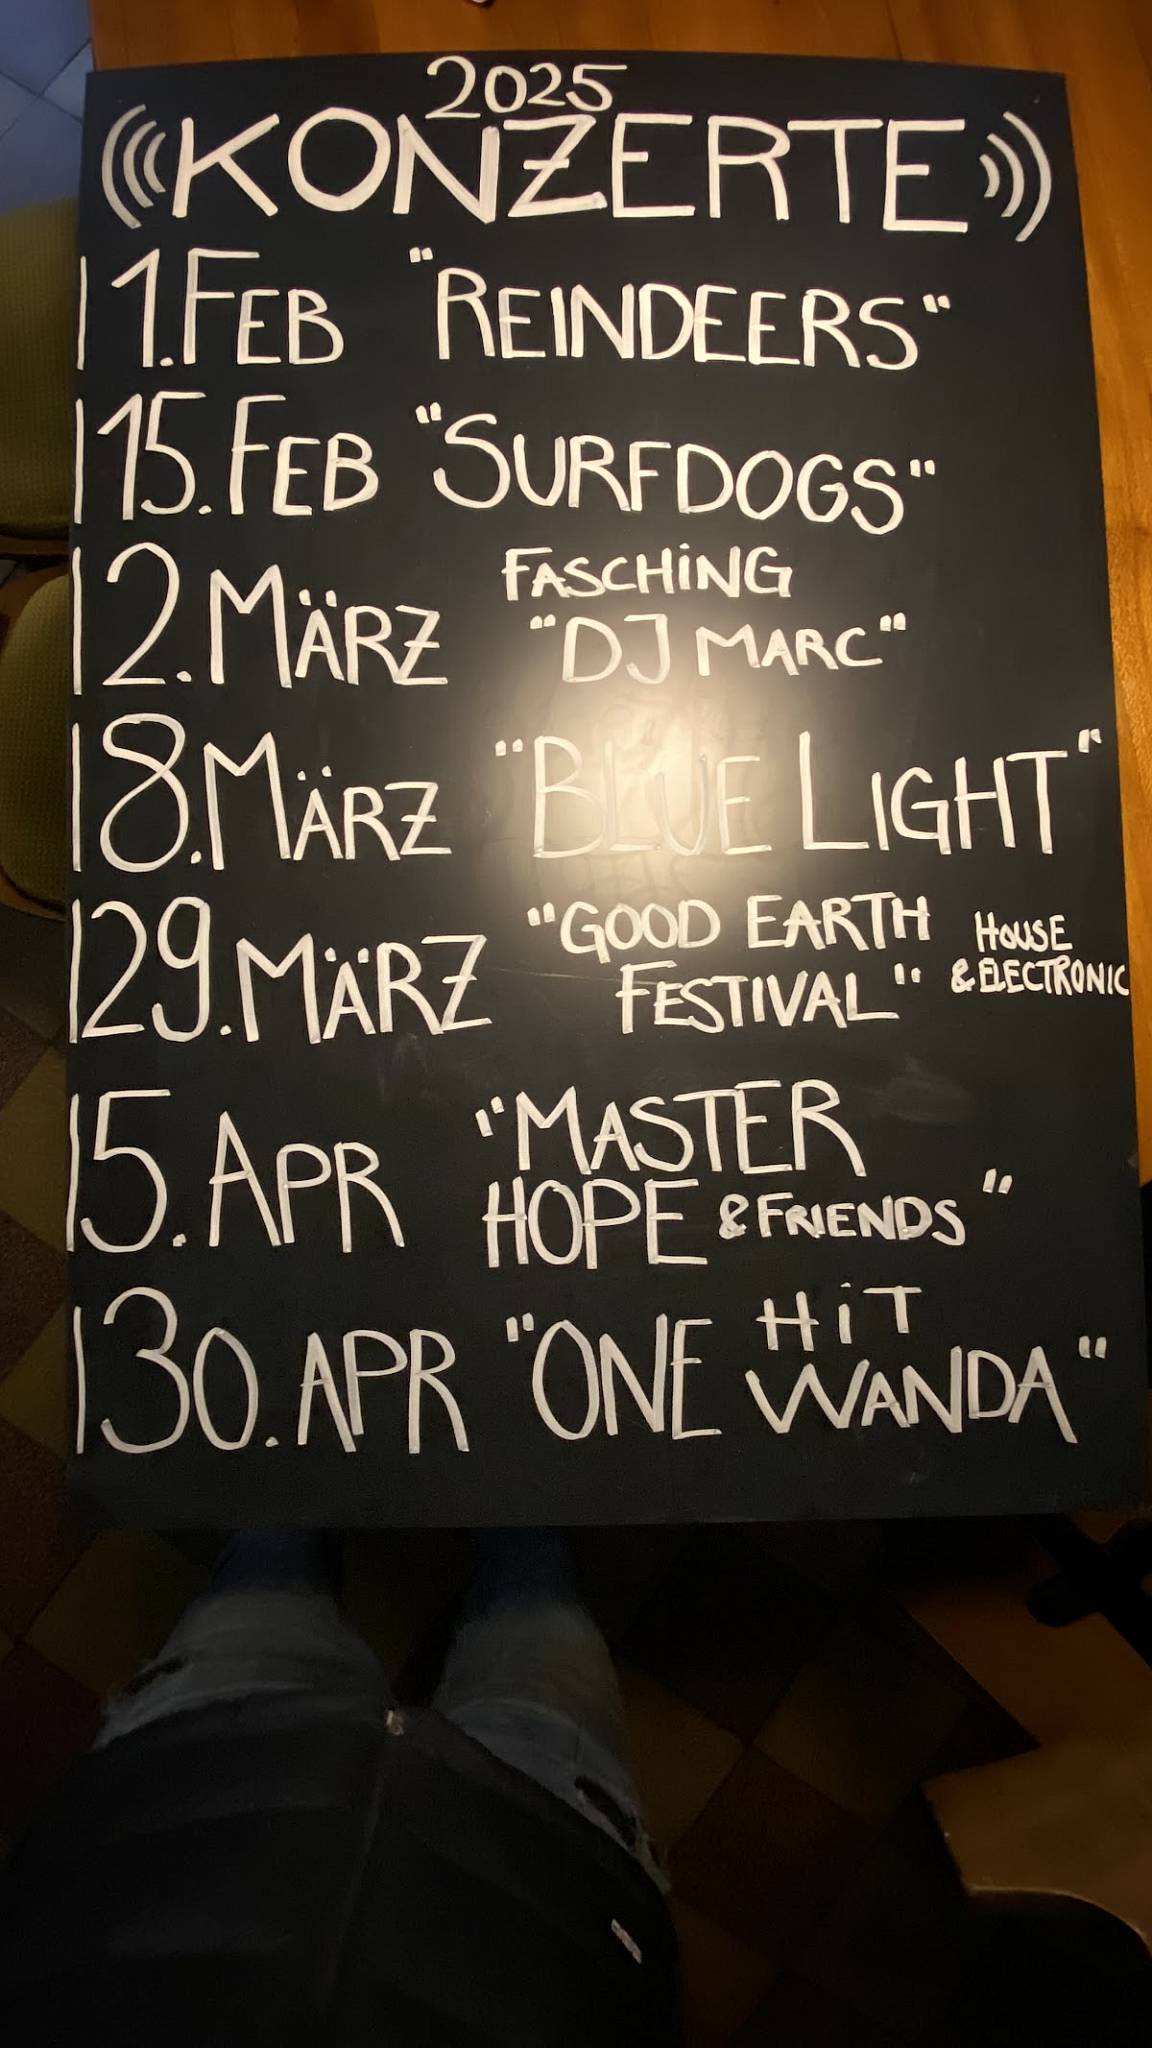 2025
KONZERTE
1. FEB "REINDEERS"
15. FEB "SURFDOGS"
2. MÄRZ FASCHING
"DJ MARC"
8. MÄRZ "BLUE LIGHT"
29. MÄRZ "GOOD EARTH
FESTIVAL" HOUSE
& ELECTRONIC
5. APR "MASTER
HOPE & FRIENDS"
30. APR "ONE HiT
WANDA"